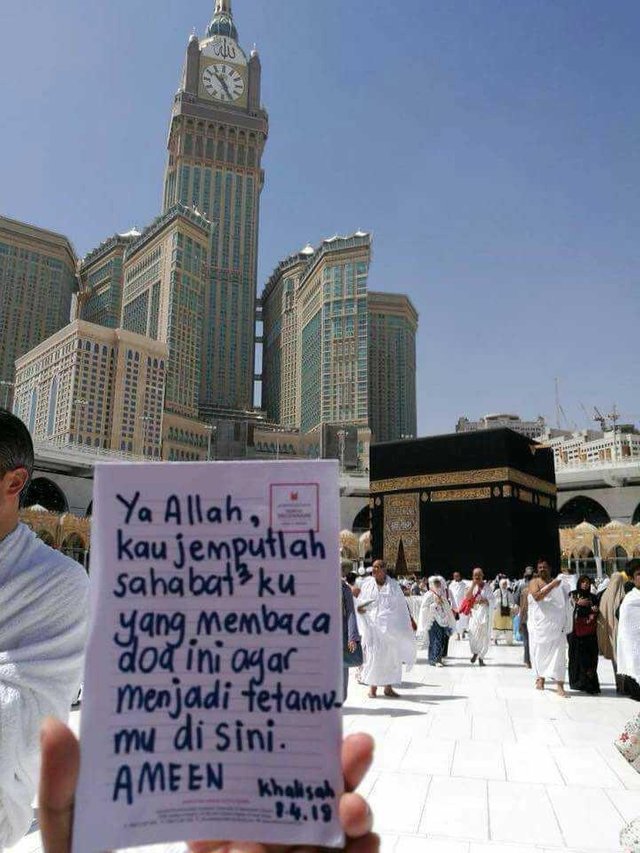 Ya Allah,
kau jemputlah
sahabat² ku
yang membaca
doa ini agar
menjadi tetamu-
mu di sini.
AMEEN
Khalisah
8.4.18